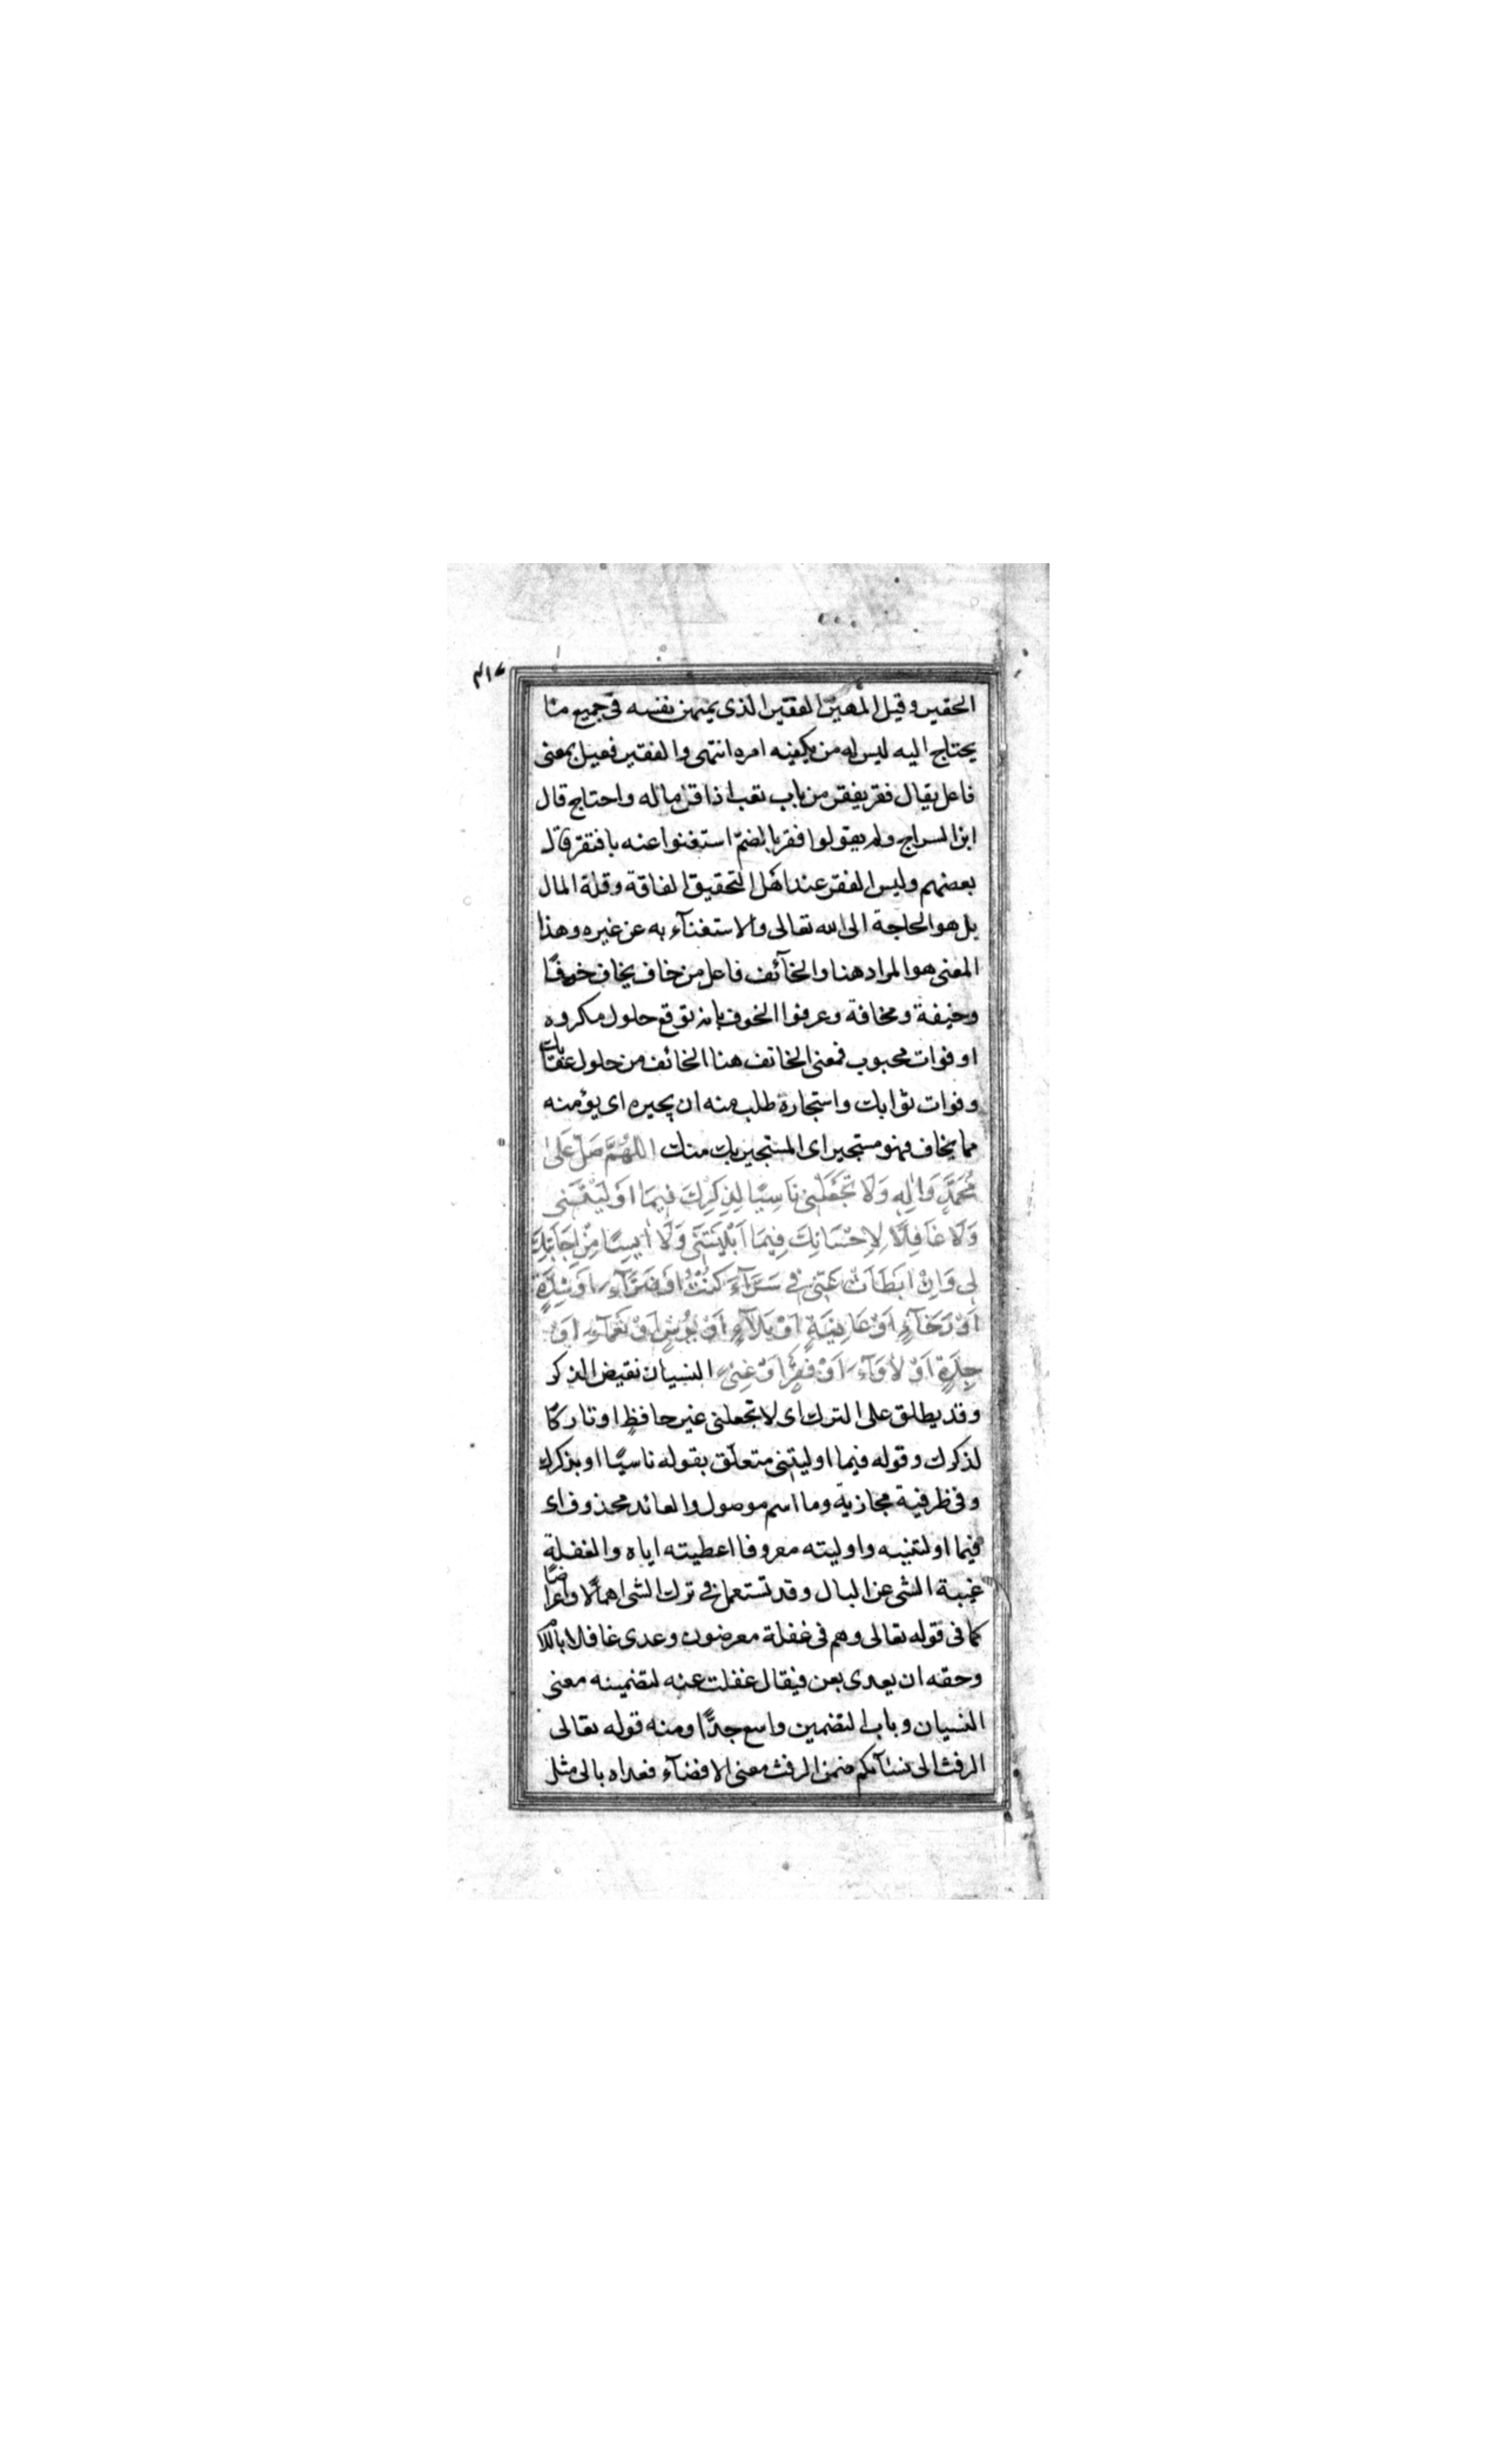 الحقير وقيل المهين الفقير الذى يمتهن نفسه فى جميع ما
يحتاج اليه ليس له من يكفيه امره انتهى والفقير فعيل بمعنى
فاعل يقال فقر يفقر من باب تعب اذا قل ماله واحتاج قال
ابن السراج ولم يقولوا فقر بالضمّ استغنوا عنه بافتقر قال
بعضهم وليس الفقر عند اهل التحقيق الفاقة وقلة المال
بل هو الحاجة الى الله تعالى والاستغنآء به عن غيره وهذا
المعنى هو المراد هنا والخآئف فاعل من خاف يخاف خوفًا
وخيفة ومخافة وعرفوا الخوف بانه توقع حلول مكروه
او فوات محبوب فمعنى الخائف هنا الخائف من حلول عقابك
وفوات ثوابك واستجاره طلب منه ان يجيره اى يؤمنه
مما يخاف فهو مستجير اى المستجير بك منك اللهُمَّ صَلِّ عَلىٰ
مُحَمَّدٍ وَاٰلِهِ وَلَا تَجْعَلْنى نَاسِيًا لِذِكْرِكَ فِيمَا اَوْلَيْتَنى
وَلَا غَافِلًا لِاِحْسَانِكَ فِيمَا اَبْلَيْتَنى وَلَا اٰيِسًا مِنْ اِجَابَتِكَ
لى وَاِنْ اَبْطَأَتْ عَنّى فى سَرَّآءَ كُنْتُ اَوْ ضَرَّآءَ اَوْ شِدَّةٍ
اَوْ رَخَآءٍ اَوْ عَافِيَةٍ اَوْ بَلَآءٍ اَوْ بُؤْسٍ اَوْ نَعْمَآءَ اَوْ
جِدَةٍ اَوْ لَأْوَآءَ اَوْ فَقْرٍ اَوْ غِنىً النسيان نقيض الذكر
وقد يطلق على الترك اى لا تجعلنى غير حافظٍ او تاركًا
لذكرك وقوله فيما اوليتنى متعلق بقوله ناسيًا او بذكرك
وفى ظرفية مجازية وما اسم موصول والعائد محذوف اى
فيما اولتنيه واوليته معروفا اعطيته اياه والغفلة
غيبة الشى عن البال وقد تستعمل فى ترك الشى اهمالًا واعراضًا
كما فى قوله تعالى وهم فى غفلة معرضون وعدى غافلا باللام
وحقه ان يعدى بعن فيقال غفلت عنه لتضمينه معنى
النسيان وباب التضمين واسع جدًّا ومنه قوله تعالى
الرفث الى نسآئكم ضمن الرفث معنى الافضآء فعداه بالى مثل